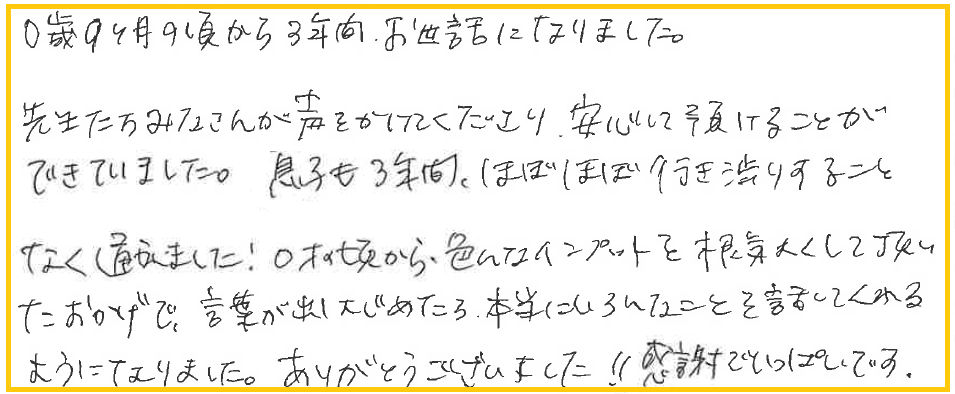 0歳9ヶ月の頃から3年間、お世話になりました。
先生たちみなさんが声をかけてくださり、安心して預けることが
できていました。息子も3年間、ほぼほぼ行き渋りすること
なく通えました！0才の頃から、色んなインプットを根気太くして頂い
たおかげで、言葉が出はじめたら、本当にいろんなことを言話してくれる
ようになりました。ありがとうございました!!感謝でいっぱいです.